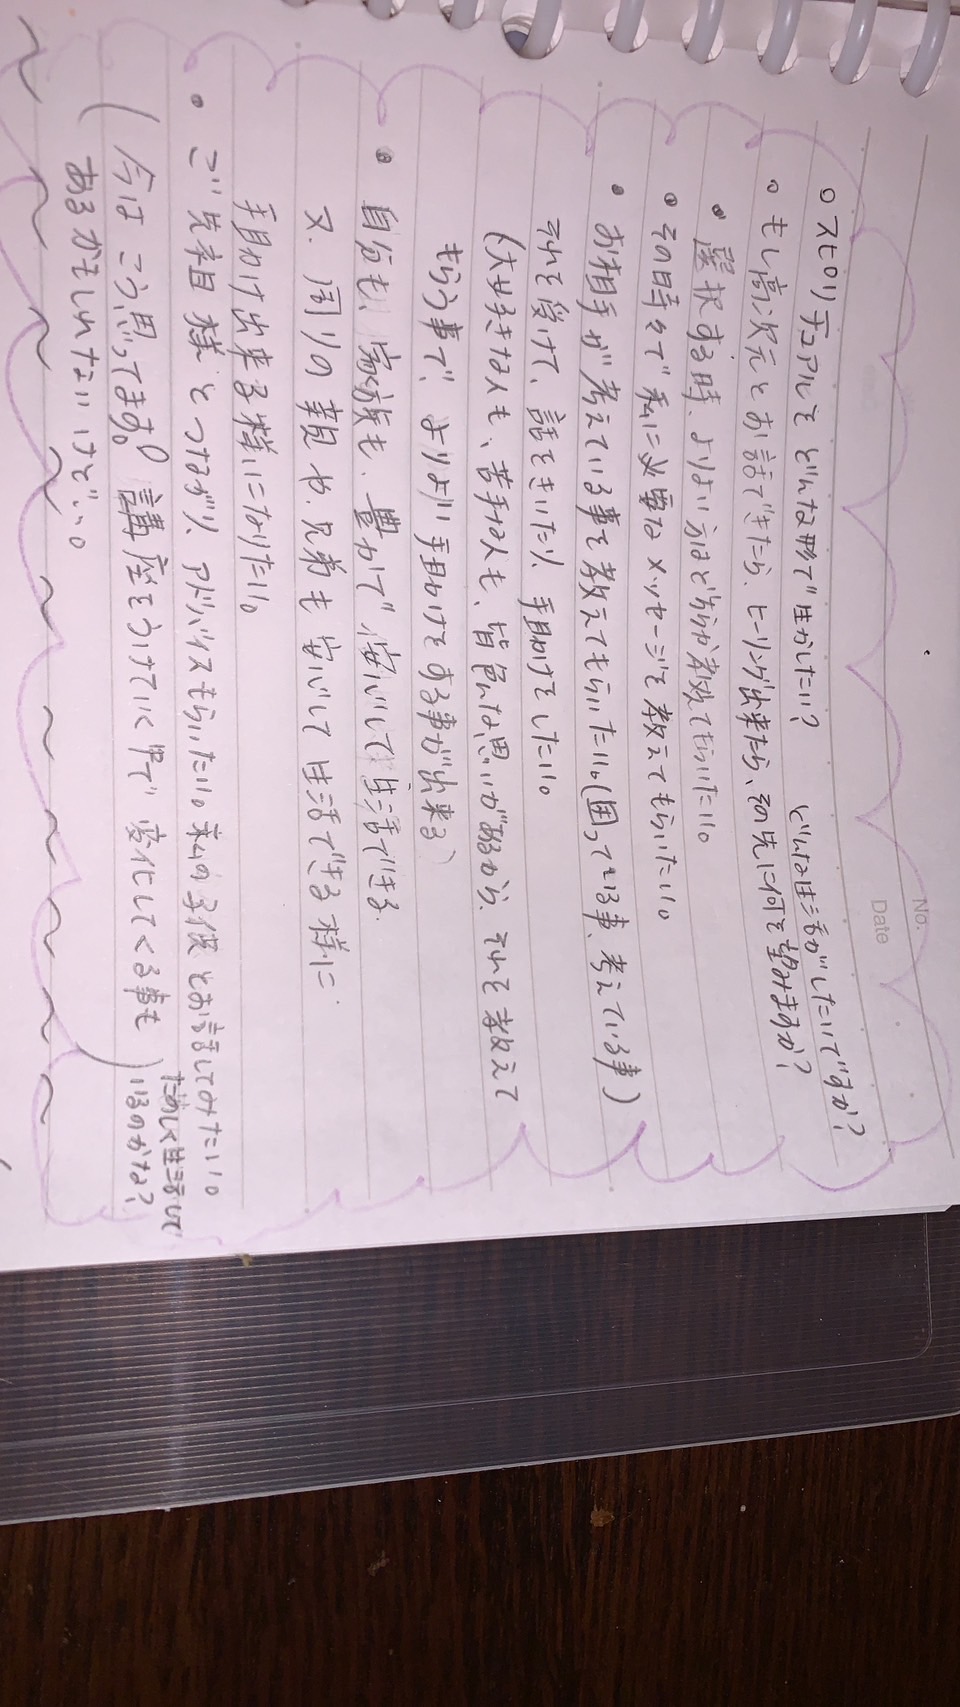 No.
Date
○スピリチュアルを どんな形で生かしたい? どんな生活がしたいですか?
○もし高次元とお話できたら、ヒーリング出来たら、その先に何を望みますか?
・選択する時、よりよい方はどちらか教えてもらいたい。
・その時々で私に必要なメッセージを教えてもらいたい。
・お相手が考えている事を教えてもらいたい。(困っている事、考えている事)
それを受けて、話をきいたり、手助けをしたい。
(大好きな人も、苦手な人も、皆色んな思いがあるから、それを教えて
もらう事で、よりよい手助けをする事が出来る)
・自分も、家族も、豊かで安心して生活できる。
又、周りの親や、兄弟も安心して生活できる様に
手助け出来る様になりたい。
・ご先祖様とつながり、アドバイスもらいたい。私の子供とお話してみたい。
たのしく生活して
いるのかな?
(今はこう思ってます。講座をうけていく中で変化してくる事も
あるかもしれないけど。。)